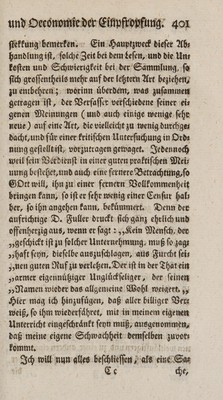 und Oeconomie der Einpfropfung. 401
steckung bemerken. Ein Hauptzweck dieser Ab-
handlung ist, solche Zeit bei dem besen, und die Un-
kosten und Schwierigkeit bei der Sammlung, so
sich grossentheils mehr auf der letztern Art beziehen,
zu entbehren; worinn überdem, was zusammen
getragen ist, der Verfasser verschiedene seiner ei-
genen Meinungen (und auch einige wenige sehr
neue) auf eine Art, die vielleicht zu wenig durchge-
dacht, und für einer kritischen Untersuchung in Ord-
nung gestellt ist, vorzutragen gewaget. Jedennoch
weil sein Verdienst in einer guten praktischen Mei-
nung bestehet, und auch eine fernere Betrachtung, so
GOtt will, ihn zu einer fernern Vollkommenheit
bringen kann, so ist er sehr wenig einer Censur hal-
ber, so ihn angehen kann, bekümmert. Denn der
aufrichtige D. Fuller druckt sich ganz ehrlich und
offenherzig aus, wenn er sagt: „Kein Mensch, der
„geschickt ist zu solcher Unternehmung, muß so zag-
„haft seyn, dieselbe auszuschlagen, aus Furcht sei-
„nen guten Ruf zu verletzen. Der ist in der That ein
„armer eigennütziger Unglückseliger, der seinen
„Namen wieder das allgemeine Wohl weigert. „
Hier mag ich hinzufügen, daß aller billiger Ver-
weiß, so ihm wiederfähret, mit in meinem eigenen
Unterricht eingeschränkt seyn muß, ausgenommen,
daß meine eigene Schwachheit demselben zuvor-
kommt.
Ich will nun alles beschliessen, als eine Sa-
C c che,